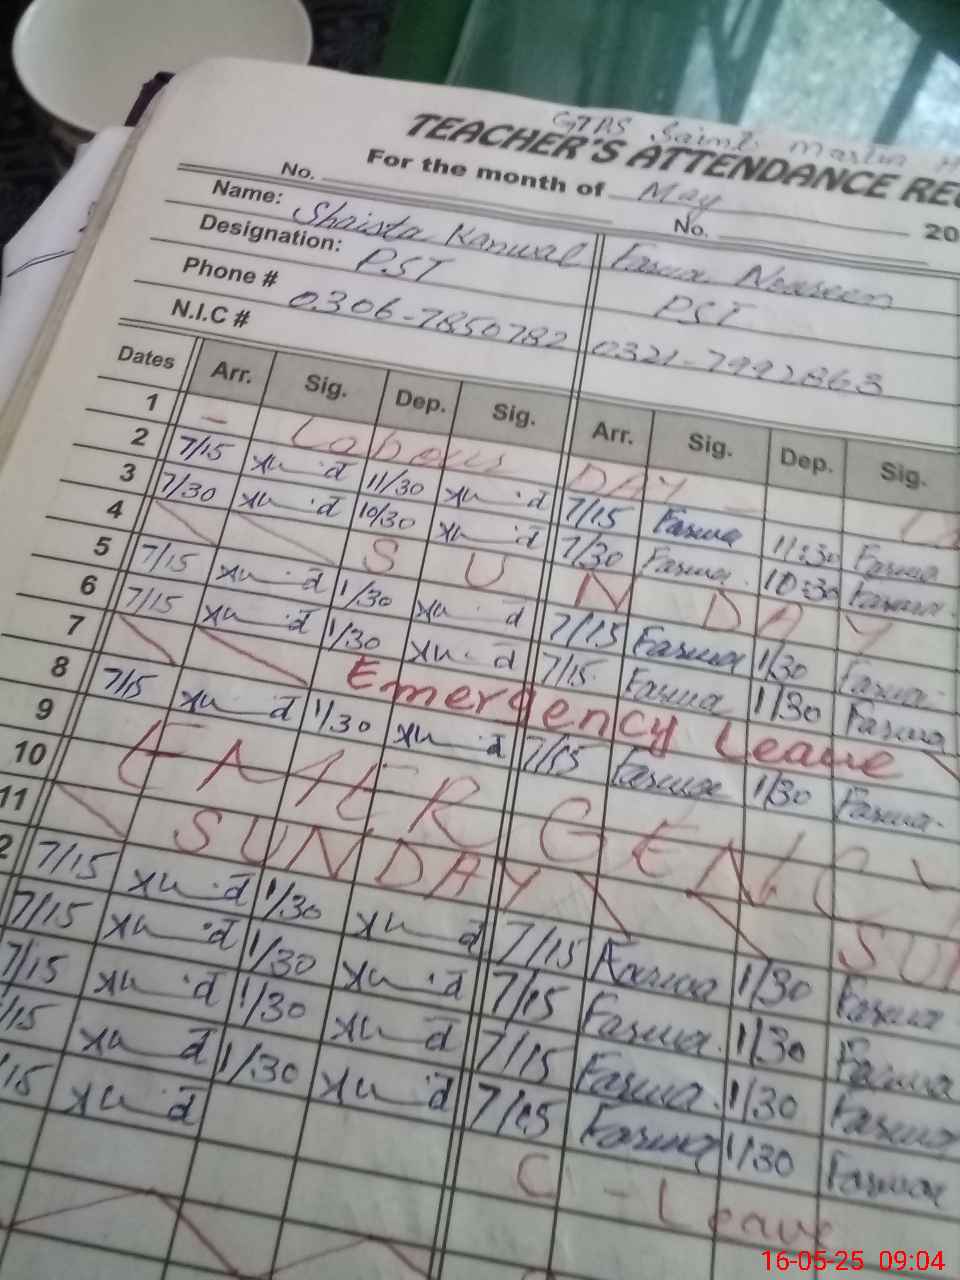 GTPS Saint Martin
TEACHER'S ATTENDANCE
For the month of May 20
No. No.
Name: Shaista Kanwal Farwa Nouseen
Designation: PST PST
Phone # 0306-7850782 0321-7992863
N.I.C #
Dates Arr. Sig. Dep. Sig. Arr. Sig. Dep. Sig.
1 - Labour DAY -
2 7/15 11/30 7/15 Farwa 11:30 Farwa
3 7/30 10/30 7/30 Farwa 10:30 Farwa
4 SUNDAY
5 7/15 1/30 7/15 Farwa 1/30 Farwa
6 7/15 1/30 7/15 Farwa 1/30 Farwa
7 Emergency Leave
8 7/15 1/30 7/15 Farwa 1/30 Farwa
9 EMERGENCY
10
11 SUNDAY SUN
2 7/15 1/30 7/15 Farwa 1/30 Farwa
7/15 1/30 7/15 Farwa 1/30 Farwa
7/15 1/30 7/15 Farwa 1/30 Farwa
/15 1/30 7/15 Farwa 1/30 Farwa
15 C - Leave
16-05-25 09:04